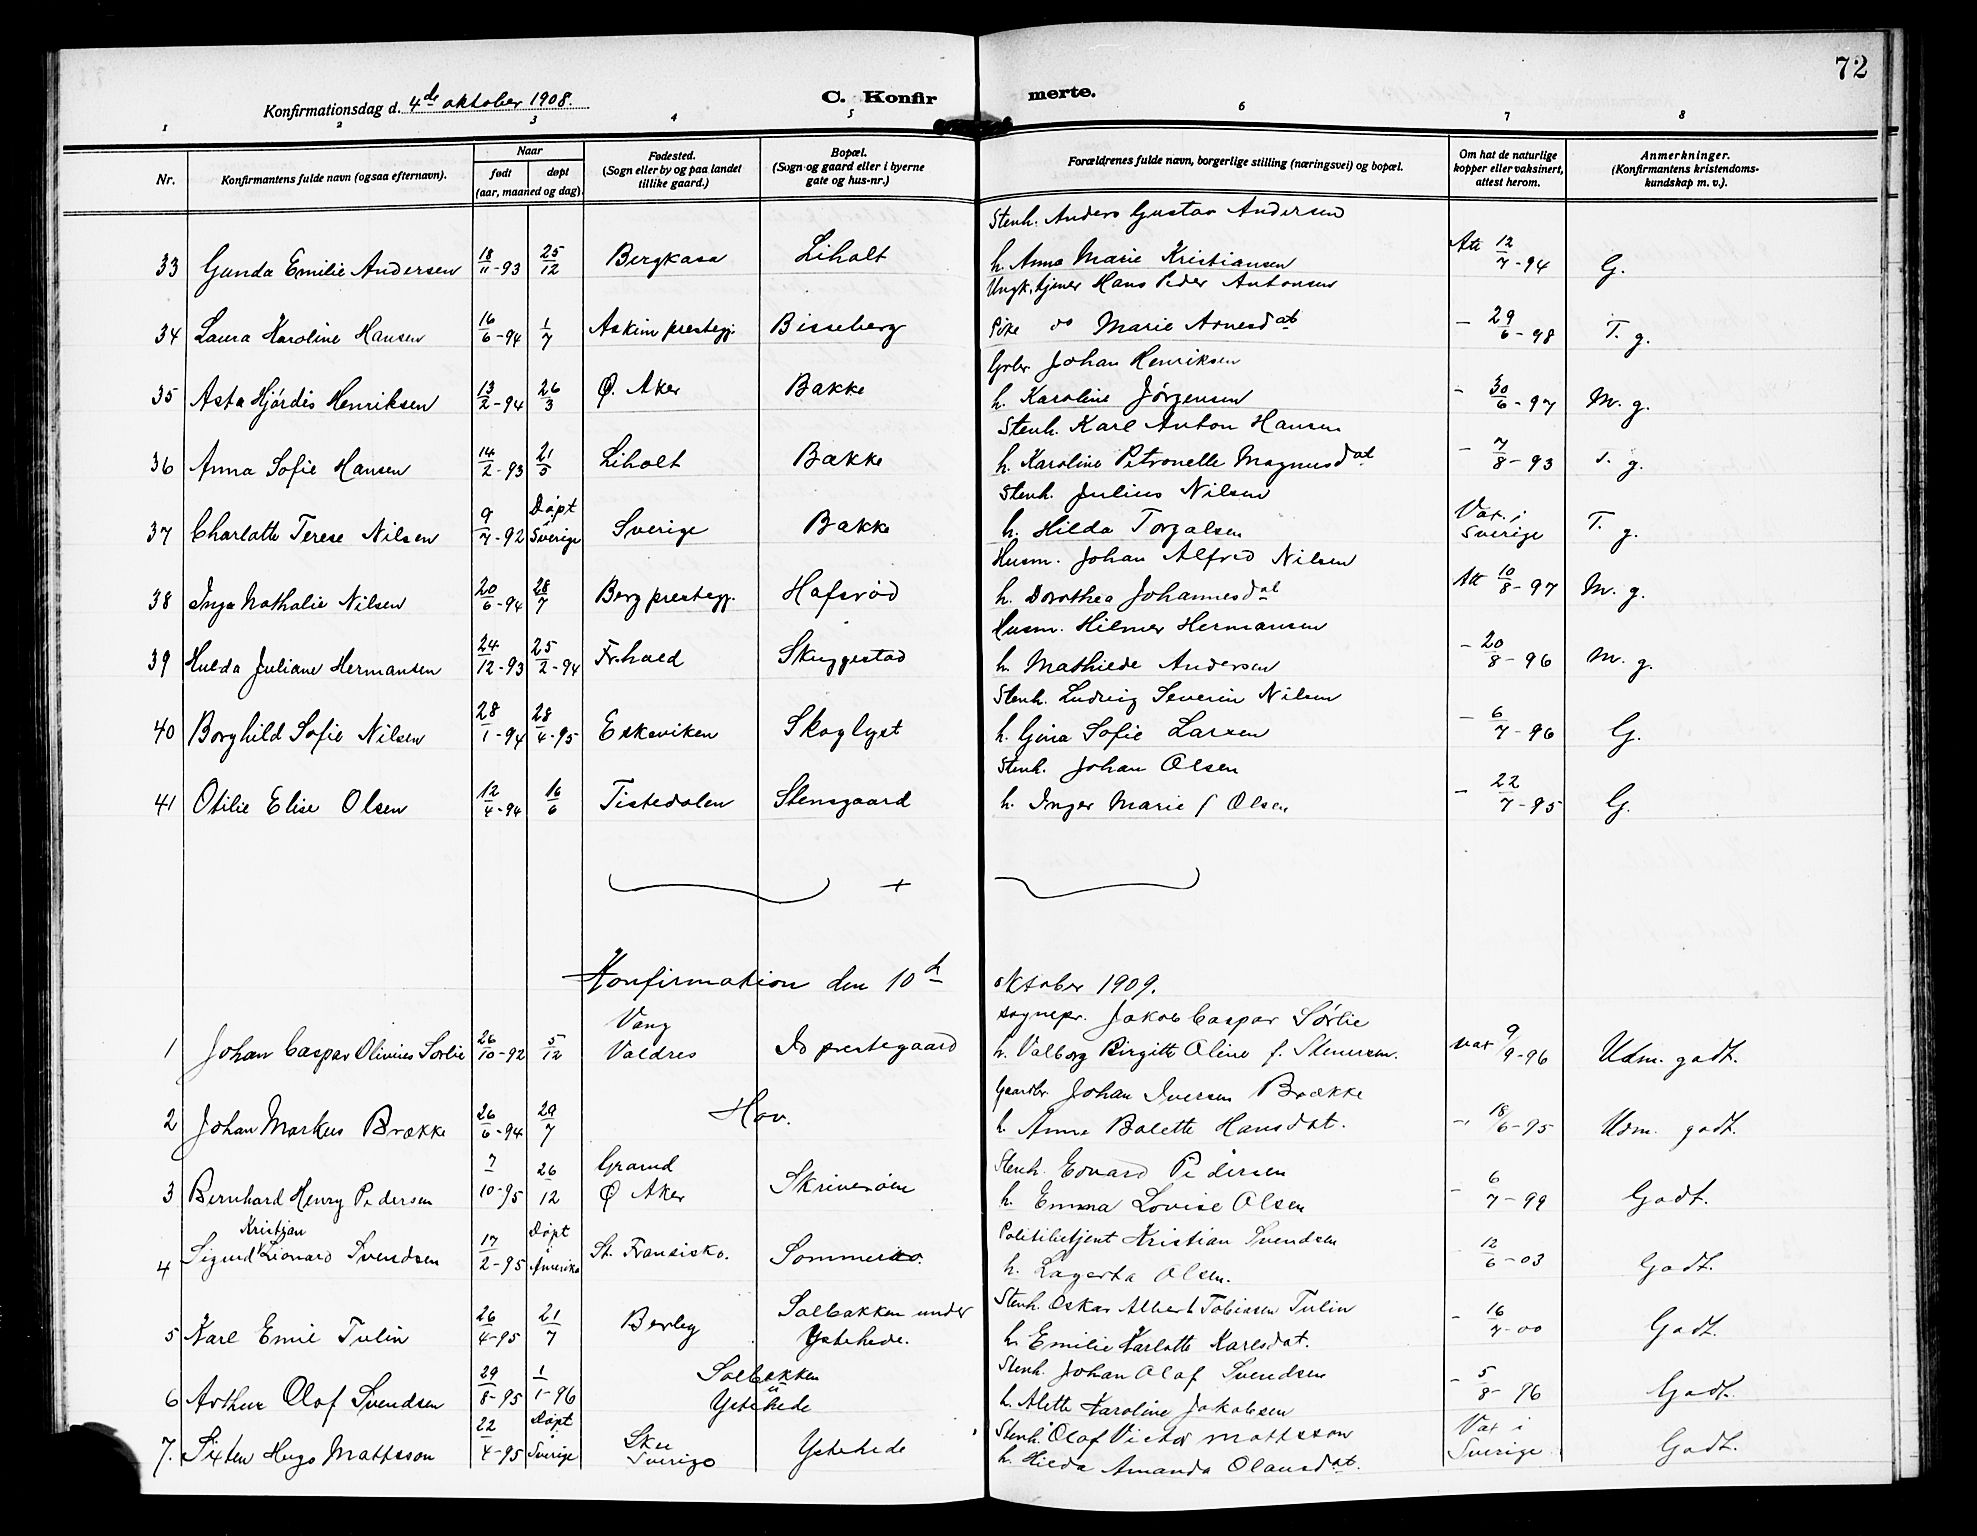 72
Konfirmationsdag d. 4de oktober 1908.
C. Konfir merte.
1 2 3 4 5 6 7 8
Nr.
Konfirmantens fulde navn (ogsaa efternavn).
Naar
født døpt
(aar, maaned og dag).
Fødested.
(Sogn eller by og paa landet
tillike gaard.)
Bopæl.
(Sogn og gaard eller i byerne
gate og hus-nr.)
Forældrenes fulde navn, borgerlige stilling (næringsvei) og bopæl.
Om hat de naturlige
kopper eller vaksinert,
attest herom.
Anmerkninger.
(Konfirmantens kristendoms-
kundskap m. v.).
Stenh. Anders Gustav Andersen
33 Gunda Emilie Andersen 18/11-93 25/12 Bergkasa Liholt h. Anna Marie Kristiansen Att 12/7-94 G.
Ungk. tjener Hans Peder Antonsen
34 Laura Karoline Hansen 16/6-94 1/7 Askim prestegj. Bisseberg Pike do Marie Arnesdat - 29/6-98 T. g.
Grbr Johan Henriksen
35 Asta Hjördis Henriksen 13/2-94 26/3 Ø. Aker Bakke h. Karoline Jørgensen - 30/6-97 M. g.
Stenh. Karl Anton Hansen
36 Anna Sofie Hansen 14/2-93 21/5 Liholt Bakke h. Karoline Petronelle Magnusdat - 7/8-93 T. g.
Stenh. Julius Nilsen
37 Charlotte Terese Nilsen 9/7-92 Døpt Sverige Sverige Bakke h. Hilda Torgalsen Vax. i Sverige T. g.
Husm. Johan Alfred Nilsen
38 Inga Nathalie Nilsen 20/6-94 28/7 Berg prestegj. Hafsrød h. Dorothea Johannesdat Att 10/8-97 M. g.
Husm. Hilmer Hermansen
39 Hulda Juliane Hermansen 24/12-93 25/2-94 Fr.hald Skuggestad h. Mathilde Andersen - 20/8-96 M. g.
Stenh. Ludvig Severin Nilsen
40 Borghild Sofie Nilsen 28/1-94 28/4-95 Eskeviken Skoglyst h. Gina Sofie Larsen - 6/7-96 G.
Stenh. Johan Olsen
41 Otilie Elise Olsen 12/4-94 16/6 Tistedalen Stensgaard h. Inger Marie f Olsen - 22/7-95 G.
Konfirmation den 10de oktober 1909.
Vang Sognepr. Jakob Caspar Sørlie
1 Johan Caspar Olivius Sørlie 26/10-92 5/12 Valdres Id prestegaard h. Valborg Birgitte Oline f. Stenersen. vax 9/9-96 Udm. godt.
Gaardbr. Johan Iversen Brække
2 Johan Markus Brække 26/6-94 29/7 Hov. h. Anna Balette Hansdat. - 18/6-95 Udm. godt.
Grorud Stenh. Edvard Pedersen
3 Bernhard Henry Pedersen 7/10-95 26/12 Ø Aker Skriverøen h. Emma Lovise Olsen - 6/7-99 Godt.
Kristian Døpt Politibetjent Kristian Svendsen
4 Sigurd Leonard Svendsen 17/2-95 i Amerika St. Fransisko. Sommero. h. Lagerta Olsen. - 12/6-03 Godt.
Solbakken under Stenh. Oskar Albert Tobiassen Tulin
5 Karl Emil Tulin 26/4-95 21/7 Berby Ystehede. h. Emilie Karlotte Karlsdat. - 16/7-00 Godt.
Solbakken Stenh. Johan Olaf Svendsen
6 Arthur Olaf Svendsen 29/8-95 1/1-96 u Ystehede h. Alette Karoline Jakobsen - 5/8-96 Godt.
Døpt Skee Stenh. Olof Victor Mattsson Vax i
7. Sixten Hugo Mattsson 22/4-95 Sverige Sverige Ystehede h. Hilda Amanda Olausdat. Sverige Godt.